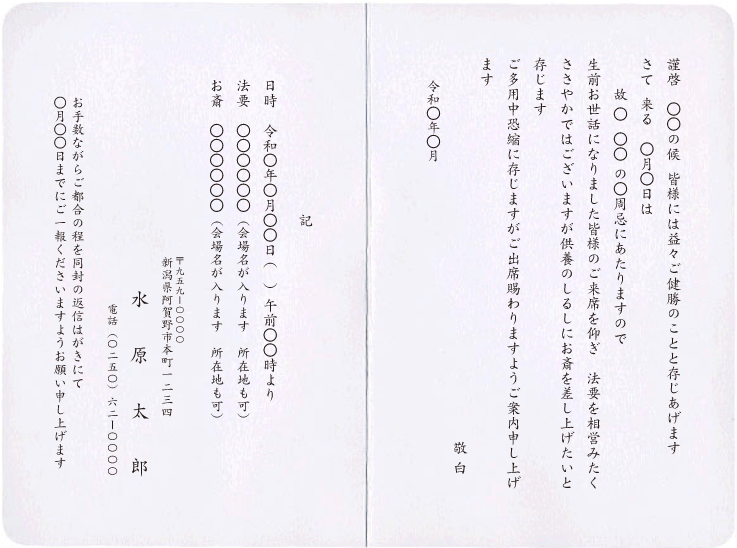 謹啓 〇〇の候 皆様には益々ご健勝のことと存じあげます
さて 来る 〇月〇日は
故 〇 〇〇 の〇周忌にあたりますので
生前お世話になりました皆様のご来席を仰ぎ 法要を相営みたく
ささやかではございますが供養のしるしにお斎を差し上げたいと
存じます
ご多用中恐縮に存じますがご出席賜わりますようご案内申し上げ
ます
敬白
令和〇年〇月
記
日時 令和〇年〇月〇〇日（ ）午前〇〇時より
法要 〇〇〇〇〇〇（会場名が入ります 所在地も可）
お斎 〇〇〇〇〇〇（会場名が入ります 所在地も可）
〒九五九ー〇〇〇〇
新潟県阿賀野市本町一二三四
水原太郎
電話（〇二五〇）六二ー〇〇〇〇
お手数ながらご都合の程を同封の返信はがきにて
〇月〇〇日までにご一報くださいますようお願い申し上げます